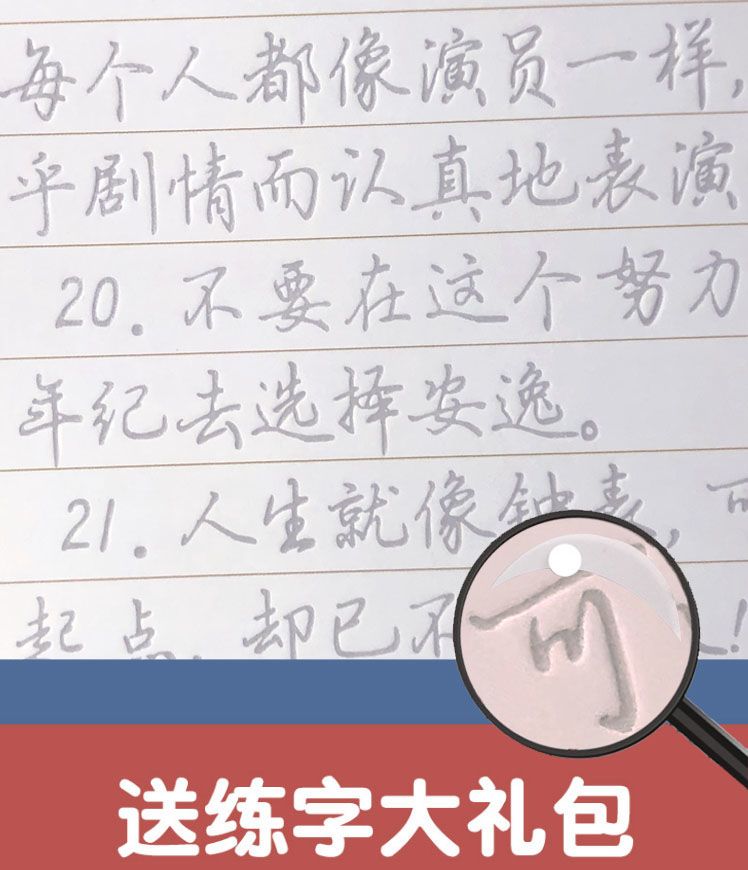 每个人都像演员一样,
乎剧情而认真地表演
20. 不要在这个努力
年纪去选择安逸。
21. 人生就像钟表, 可
起点, 却已不
!
可
送练字大礼包